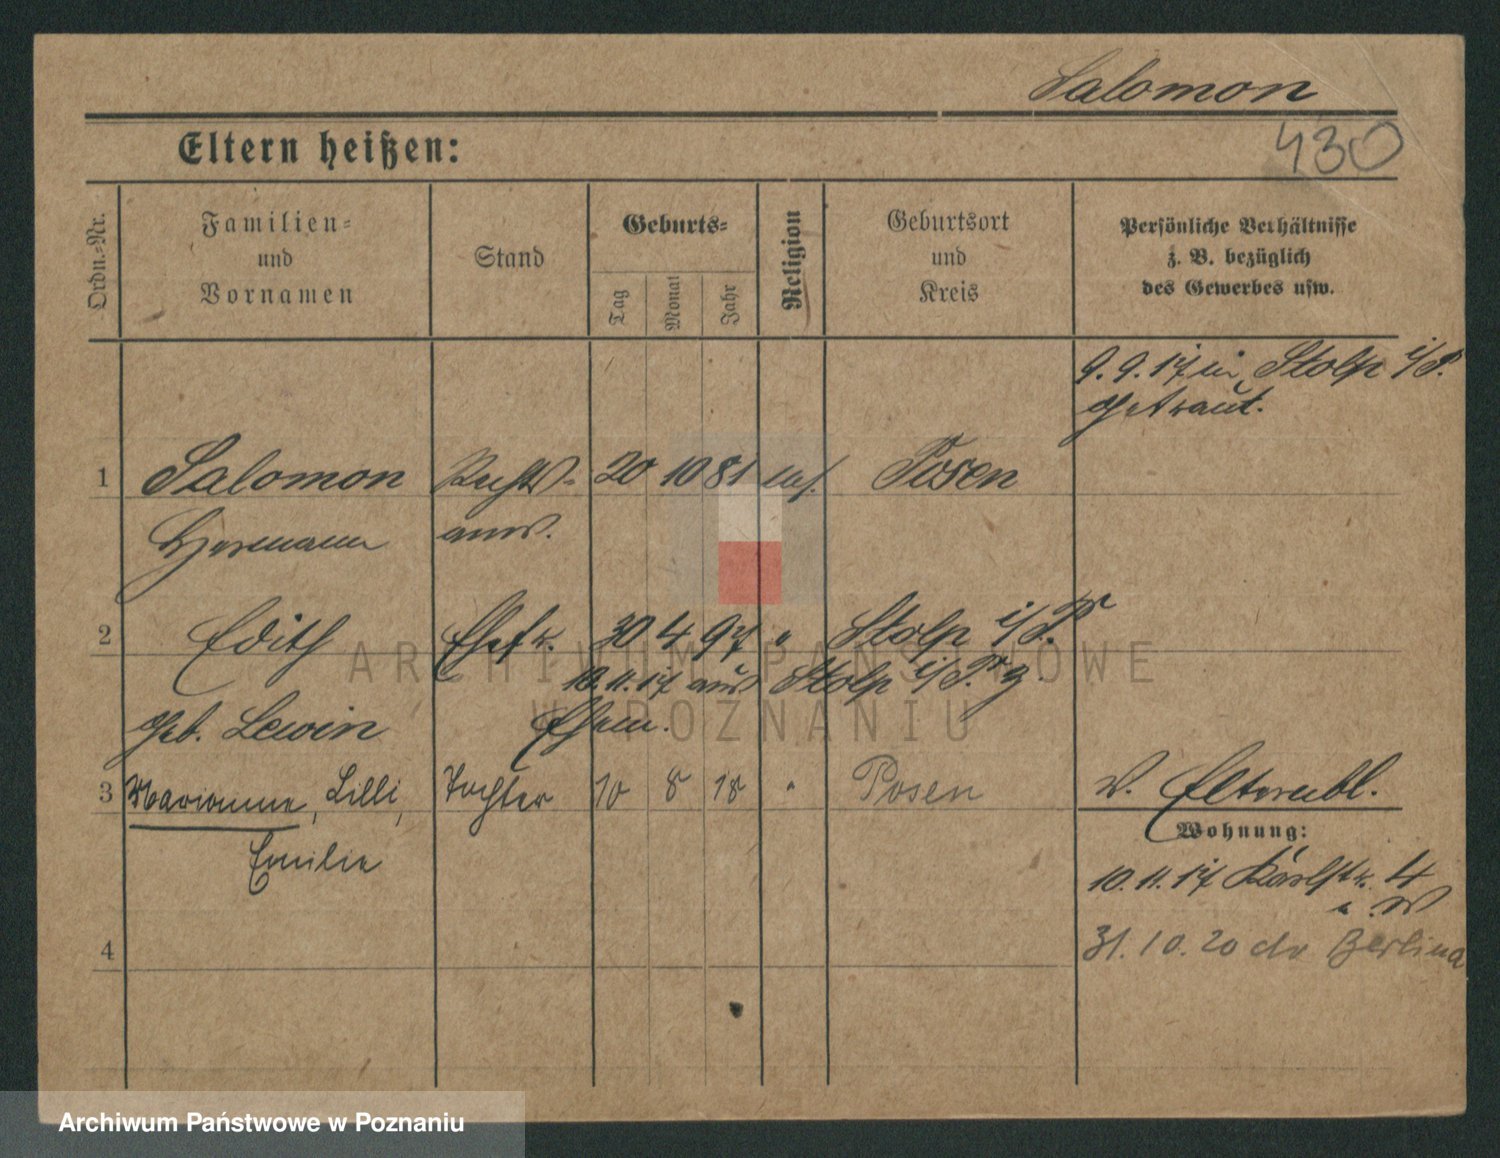 Salomon
Eltern heißen:
430
Ordn.-Nr.
Familien-
und
Vornamen
Stand
Geburts-
Tag
Monat
Jahr
Religion
Geburtsort
und
Kreis
Persönliche Verhältnisse
z. B. bezüglich
des Gewerbes usw.
9. 9. 17 in Stolp i/P.
getraut.
1 Salomon Rechts- 20 10 81 Posen
Hermann anw.
2 Edith Ehefr. 30 4 97 " Stolp i/P.
10.11.17 aus Stolp i/P. z.
geb. Lewin Ehem.
3 Marianne, Lilli, Tochter 10 8 18 " Posen
Emilie
w. Elternbl.
Wohnung:
10. 11. 17 Karlstr. 4
31. 10. 20 do Berlina
4
ARCHIWUM PAŃSTWOWE
W POZNANIU
Archiwum Państwowe w Poznaniu